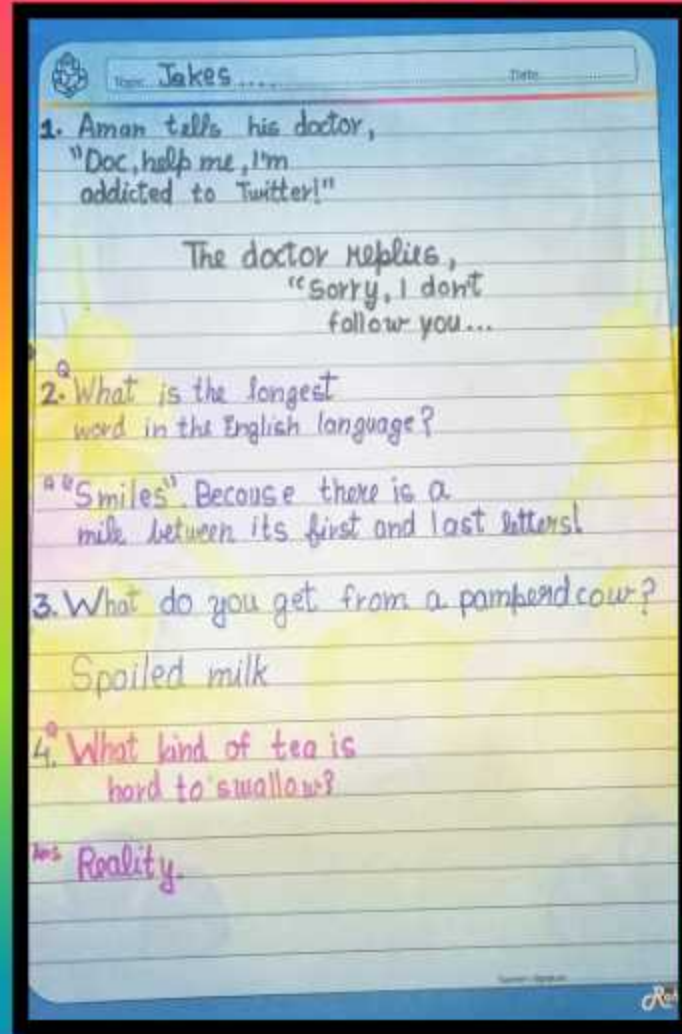 Topic Jokes....
Date
1. Aman tells his doctor,
"Doc, help me, I'm
addicted to Twitter!"
The doctor replies,
"Sorry, I don't
follow you...
Q
2. What is the longest
word in the English language?
A "Smiles". Because there is a
mile between its first and last letters!
3. What do you get from a pamperd cow?
Spoiled milk
Q
4. What kind of tea is
hard to swallow?
Ans Reality.